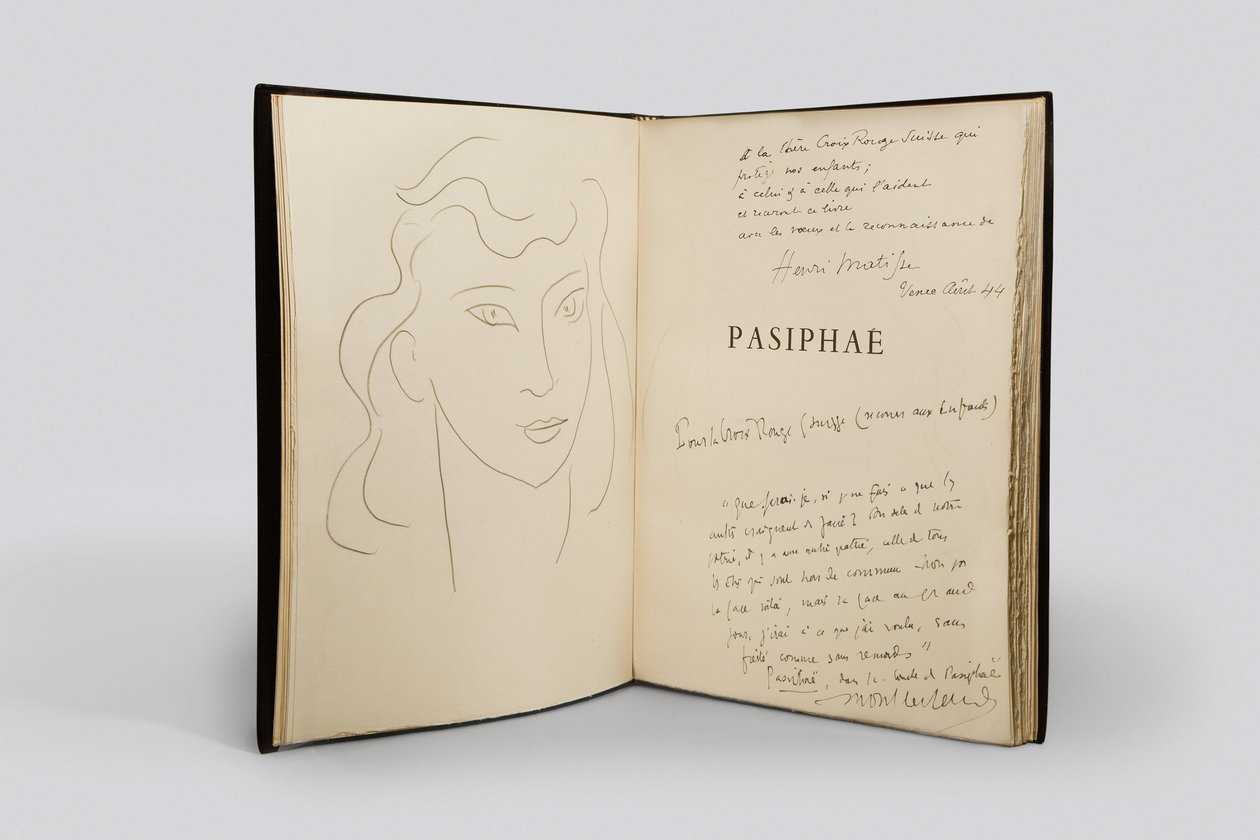 à la chère Croix Rouge Suisse qui
protège nos enfants;
à celui & à celle qui l'aident
et recevront ce livre
avec les vœux et la reconnaissance de
Henri Matisse
Vence Août 44
PASIPHAÉ
Pour la Croix Rouge Suisse (secours aux Enfants)
"que serai-je, si je ne fais ce que les
autres craignent de faire? Au delà de notre
patrie, il y a une autre patrie, celle de tous
les êtres qui sont hors du commun – non pas
la face voilée, mais la face au grand
jour, j'irai à ce que j'ai voulu, sans
fierté comme sans remords"
Pasiphaé, dans la bouche de Pasiphaë
Montherlant